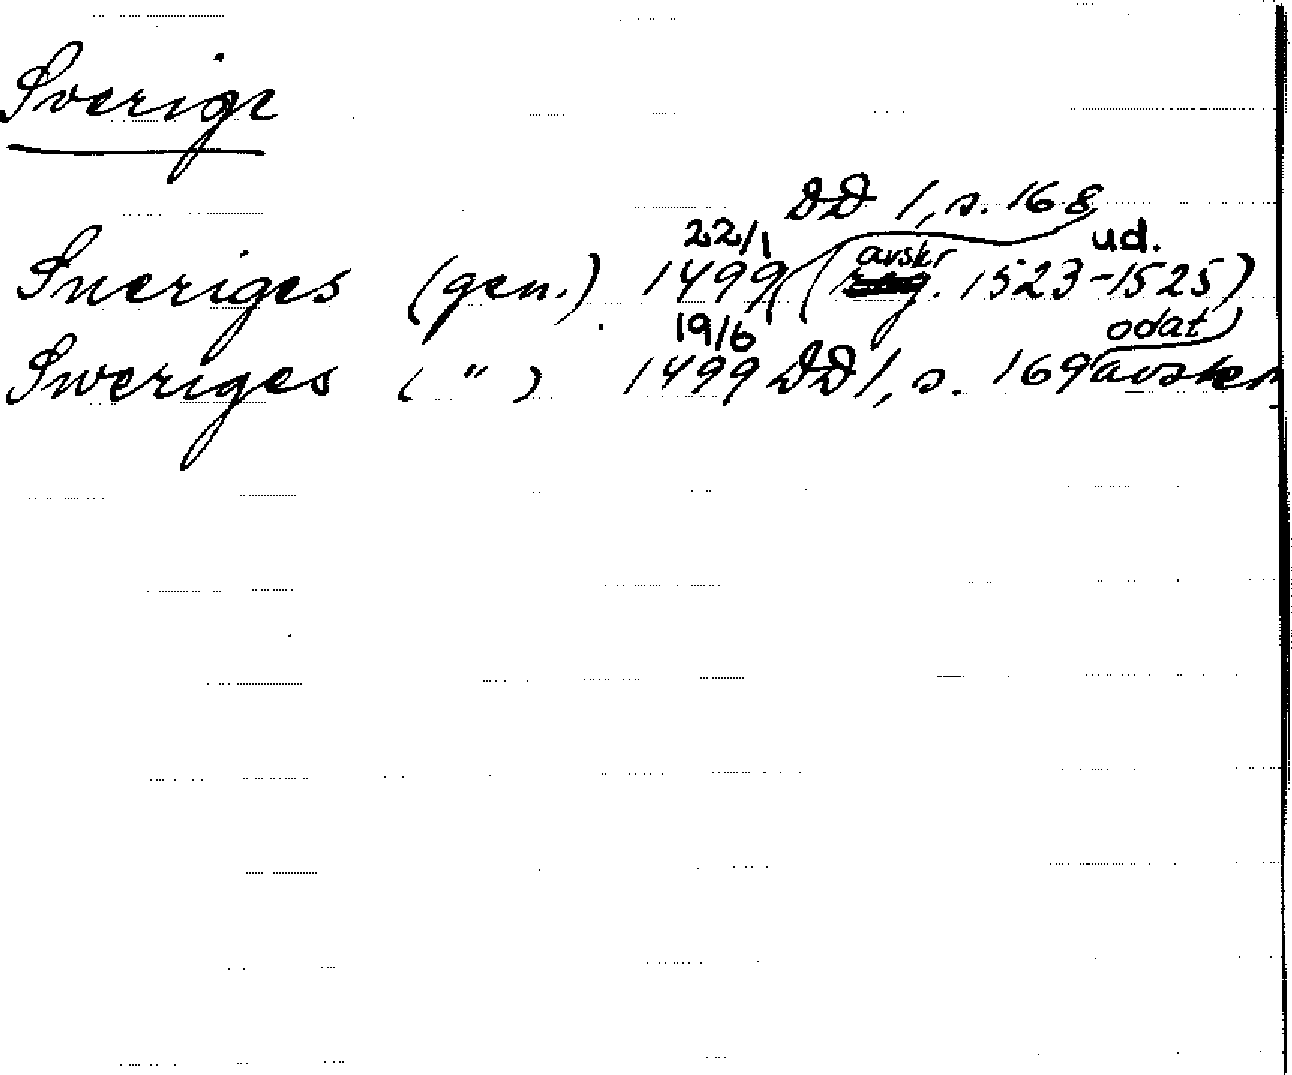 Sverige
DD 1, s. 168
22/1 avskr ud.
Sneriges (gen.) 1499 ( . 1523-1525)
19/6 odat
Sweriges ( " ) 1499 DD 1, s. 169 avskr